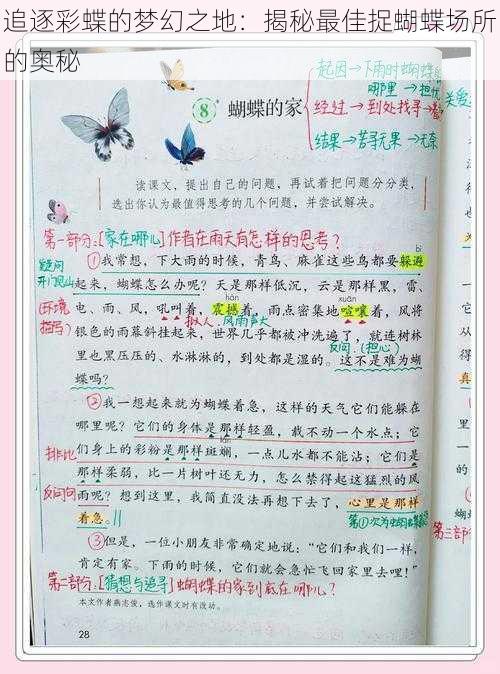 追逐彩蝶的梦幻之地：揭秘最佳捉蝴蝶场所
的奥秘
起因→下雨时蝴蝶
哪里→担忧
关爱
⑧ 蝴蝶的家
经过→到处找寻→
结果→苦寻无果→无奈
读课文，提出自己的问题，再试着把问题分分类，
选出你认为最值得思考的几个问题，并尝试解决。
第一部分：[家在哪儿]作者在雨天有怎样的思考？
疑问
开门见山
bì
①我常想，下大雨的时候，青鸟、麻雀这些鸟都要躲避
起来，蝴蝶怎么办呢？天是那样低沉，云是那样黑，雷、
hàn
xuān
(环境
描写)
电、雨、风，吼叫着，震撼着，雨点密集地喧嚷着，风将
拟人
风雨声大
银色的雨幕斜挂起来，世界几乎都被冲洗遍了，就连树林
反问：(担心)
里也黑压压的、水淋淋的，到处都是湿的。这不是难为蝴
蝶吗？
②我一想起来就为蝴蝶着急，这样的天气它们能躲在
哪里呢？它们的身体是那样轻盈，载不动一个水点；它
们身上的彩粉是那样斑斓，一点儿水都不能沾；它们是
排比
那样柔弱，比一片树叶还无力，怎么禁得起这猛烈的风
反问句
雨呢？想到这里，我简直没法再想下去了，心里是那样
着急。
第①次为蝴蝶
第三部
③但是，一位小朋友非常确定地说：“它们和我们一样，
肯定有家。下雨的时候，它们就会急忙飞回家里去哩！”
第二部分：[猜想与追寻]蝴蝶的家到底在哪儿？
本文作者燕志俊，选作课文时有改动。
28